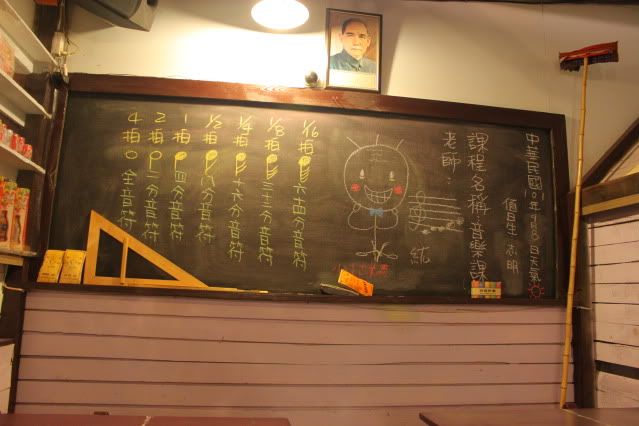 中華民國101年9月8日天氣
值日生 志明
課程名稱:音樂課
老師:
統
1/16拍 六十四分音符
1/8拍 三十二分音符
1/4拍 十六分音符
1/2拍 八分音符
1拍 四分音符
2拍 二分音符
4拍 全音符